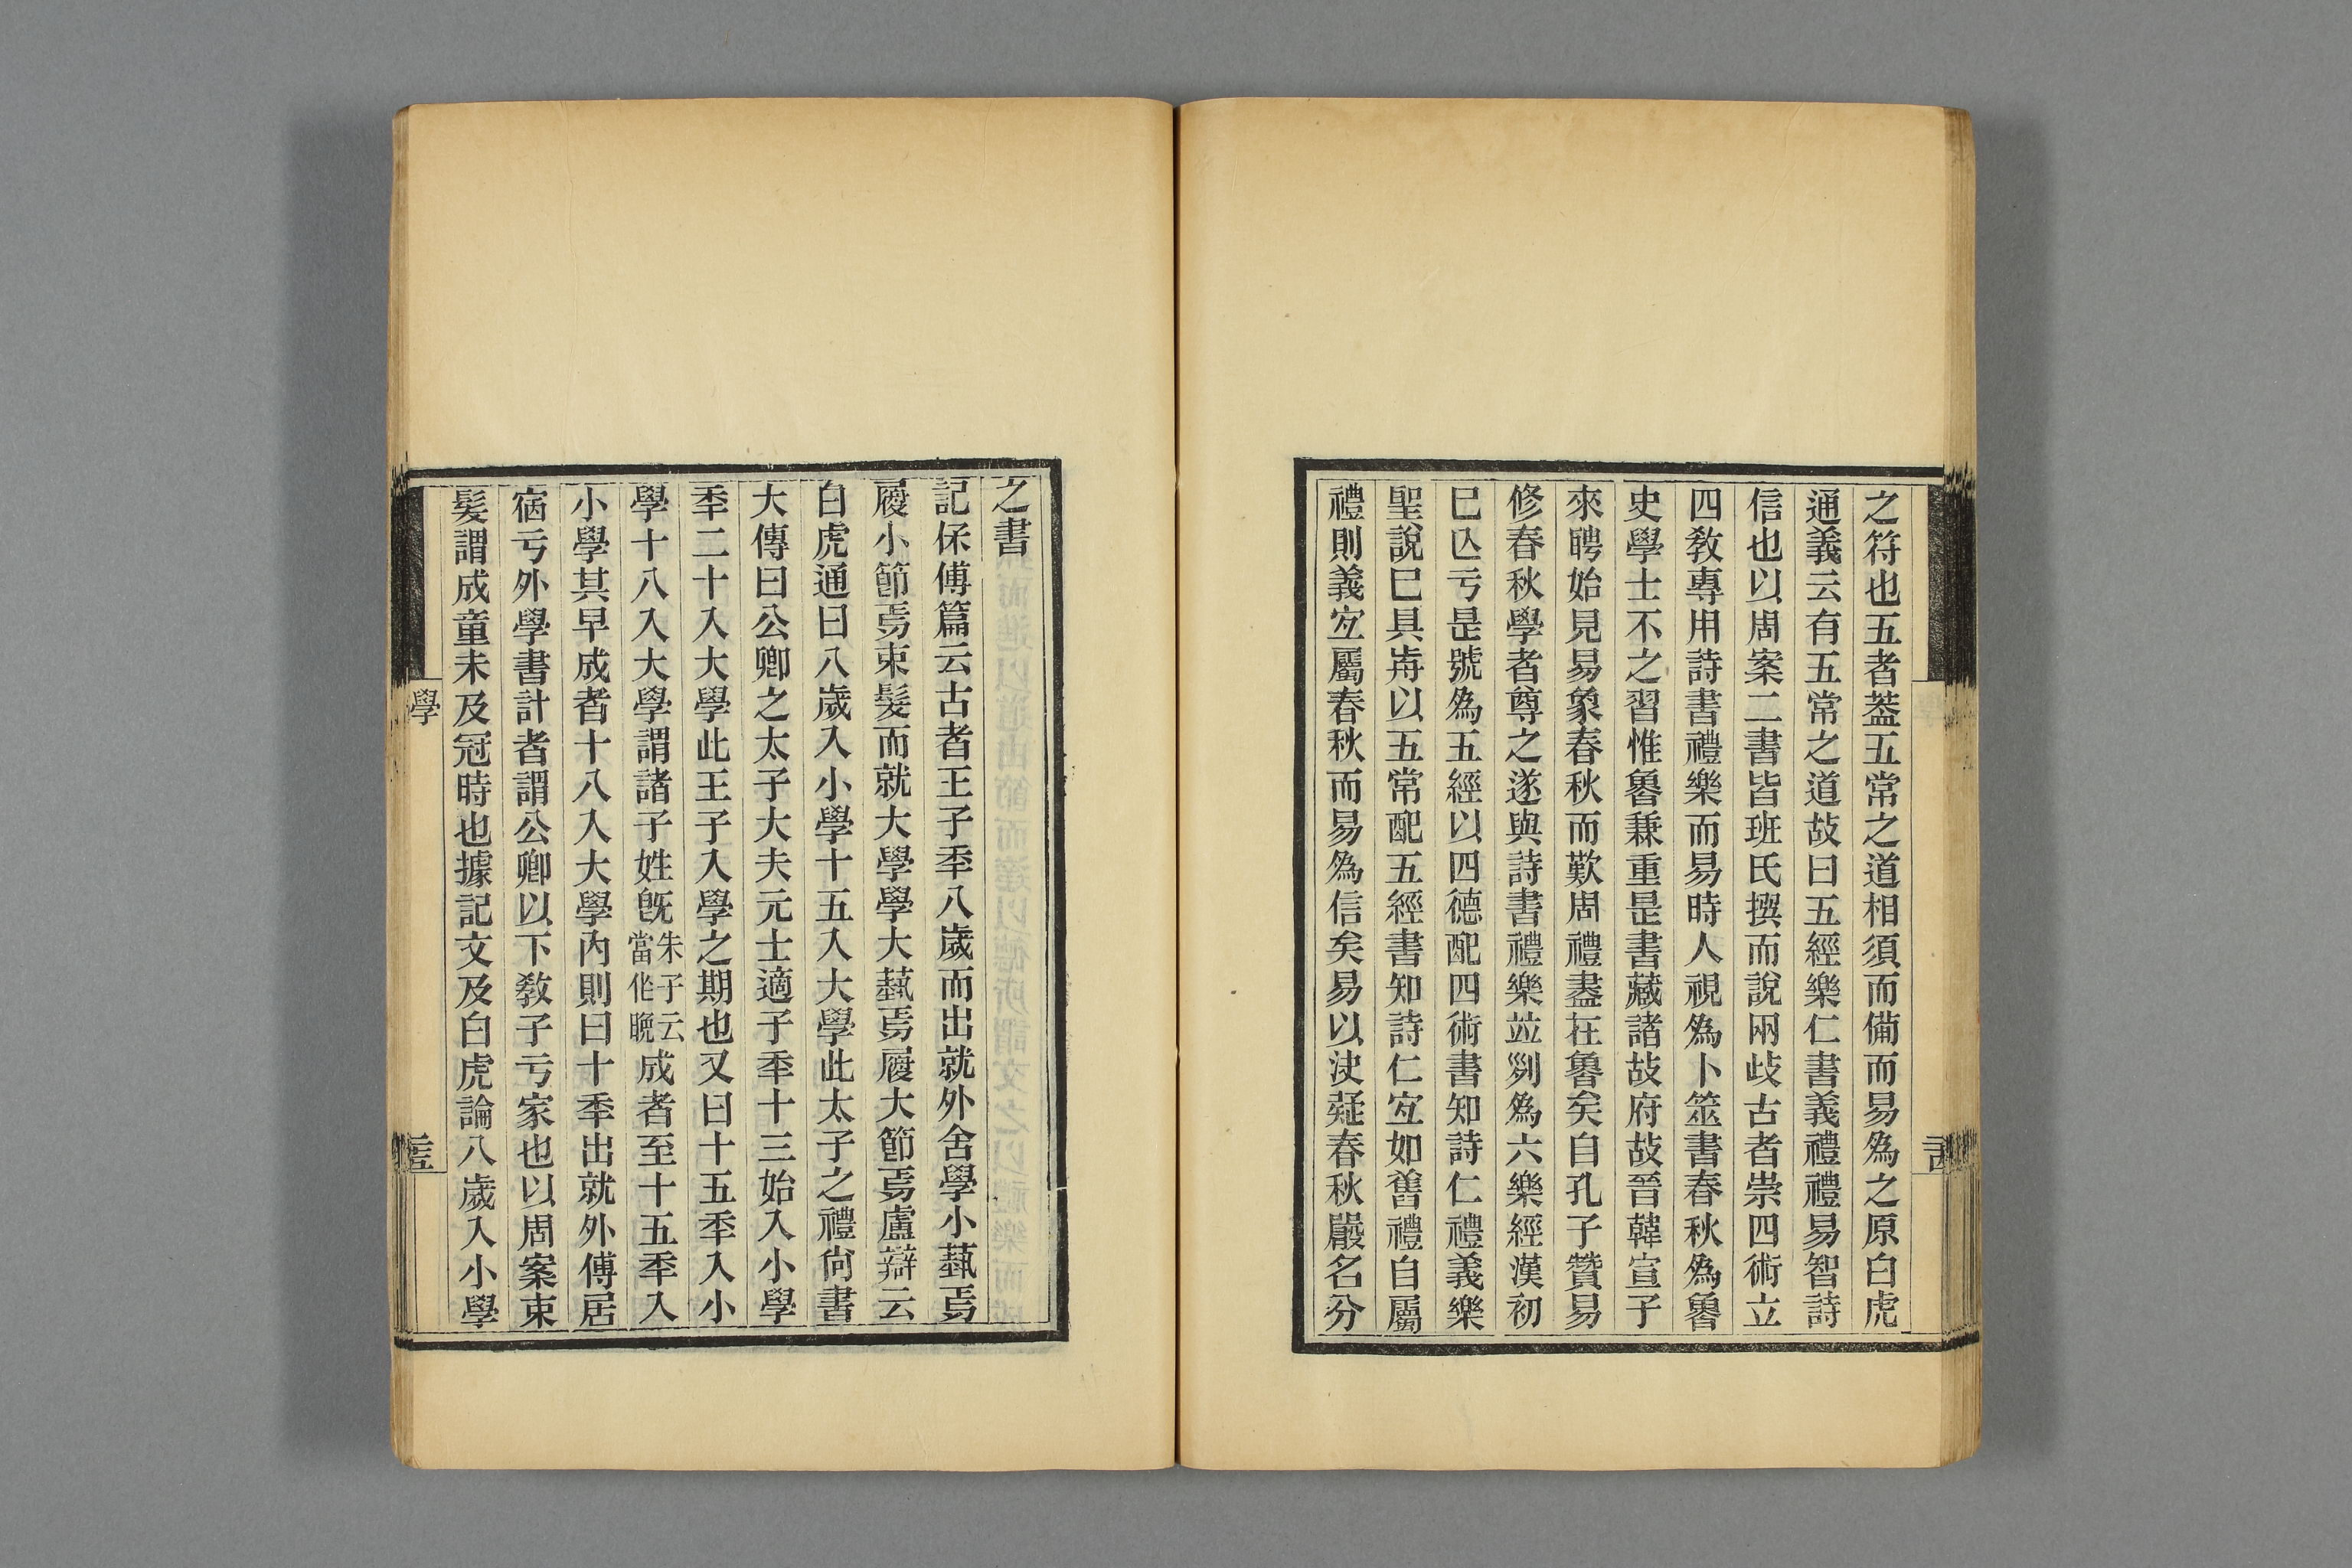 之符也五者葢五常之道相須而僃而易爲之原白虎
通義云有五常之道故曰五經樂仁書義禮禮易智詩
信也以周案二書皆班氏撰而說网歧古者崇四術立
四敎專用詩書禮樂而易時人視爲卜筮書春秋爲魯
史學士不之習惟魯兼重是書藏諸故府故晉韓宣子
來聘始見易象春秋而歎周禮盡在魯矣自孔子贊易
修春秋學者尊之遂與詩書禮樂竝列爲六樂經漢初
已亾亏是號爲五經以四德配四術書知詩仁禮義樂
聖說已具歬以五常配五經書知詩仁宐如舊禮自屬
禮則義宐屬春秋而易爲信矣易以決疑春秋嚴名分
之書
記保傅篇云古者王子秊八歲而出就外舍學小蓺焉
履小節焉束髮而就大學學大蓺焉履大節焉盧辯云
白虎通曰八歲入小學十五入大學此太子之禮尙書
大傳曰公卿之太子大夫元士適子秊十三始入小學
秊二十入大學此王子入學之期也又曰十五秊入小
學十八入大學謂諸子姓旣朱子云當作晩成者至十五秊入
小學其早成者十八入大學內則曰十秊出就外傅居
宿亏外學書計者謂公卿以下敎子亏家也以周案束
髮謂成童未及冠時也據記文及白虎論八歲入小學
學